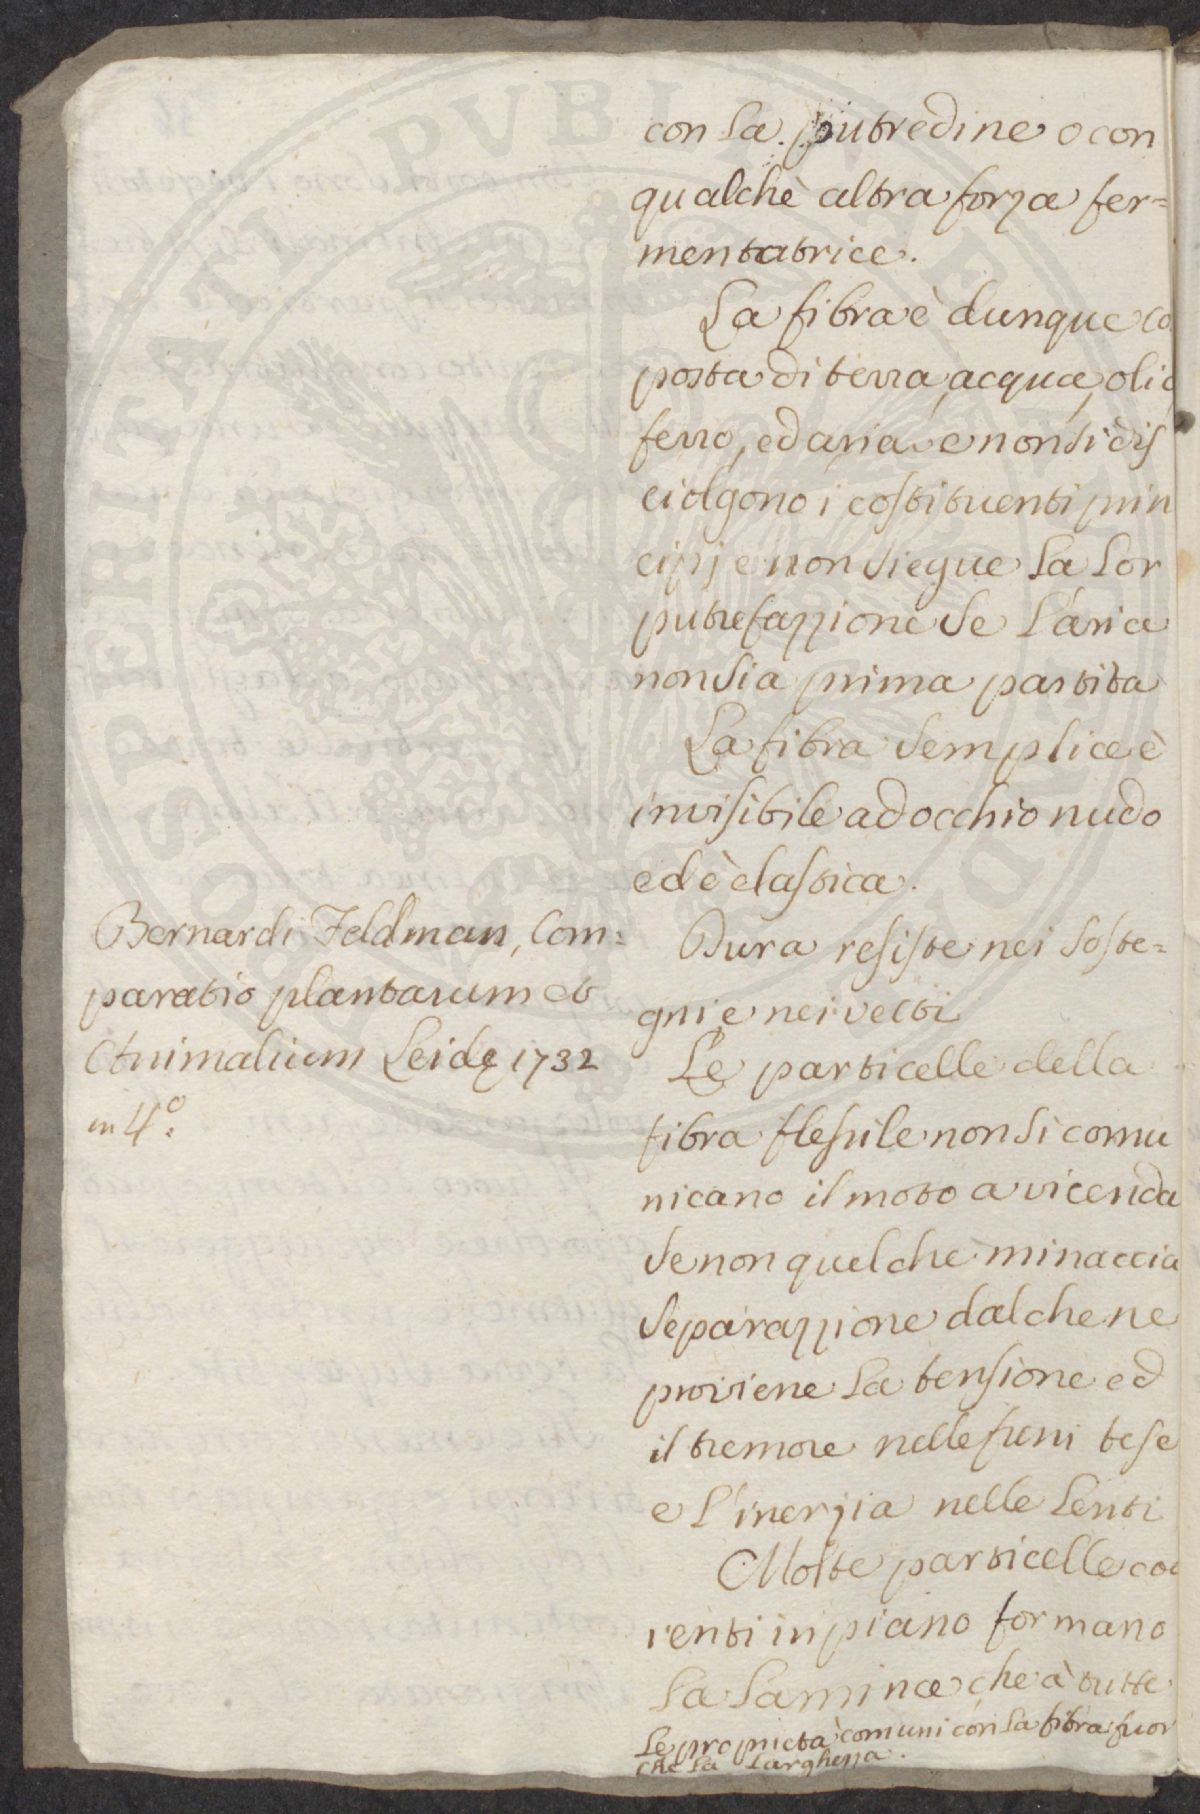 con la putredine o con
qualchè altra forza fer=
mentatrice.
La fibra è dunque co
posta di terra, acqua, olio
ferro, ed aria e non si dis
ciolgono i costituenti prin
cipj e non siegue la lor
putrefazzione se l'aria
non sia prima partita
La fibra semplice è
invisibile ad occhio nudo
ed è elastica.
Dura resiste nei soste=
gni e nei vetti
Le particelle della
fibra flessile non si comu
nicano il moto a vicenda
se non quel chè minaccia
separazzione dal che ne
proviene la tensione ed
il tremore nelle funi tese
e l'inerzia nelle lenti
Molte particelle coe
renti in piano formano
la lamina che à tutte
le proprietà comuni con la fibra fuor
che la larghezza.
Bernardi Feldman, Com=
paratio plantarum et
Animalium Leidę 1732
in 4º:
PVBLI
SOSPERITATI